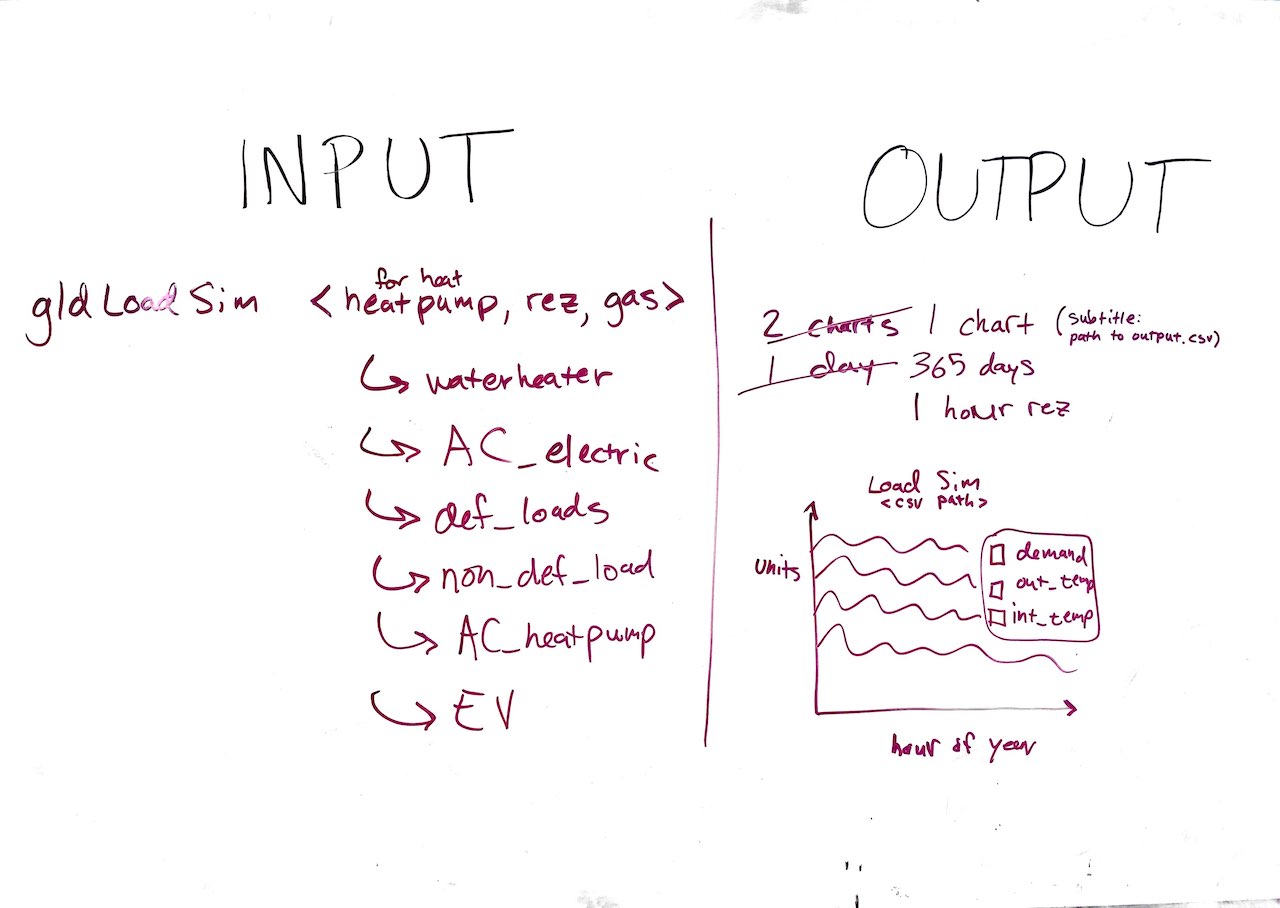 INPUT
gldLoadSim <heatpump, rez, gas>
for heat
waterheater
AC_electric
def_loads
non_def_load
AC_heatpump
EV
OUTPUT
2 charts 1 chart (subtitle: path to output.csv)
1 day 365 days
1 hour rez
Load Sim
<csv path>
units
demand
out_temp
int_temp
hour of year